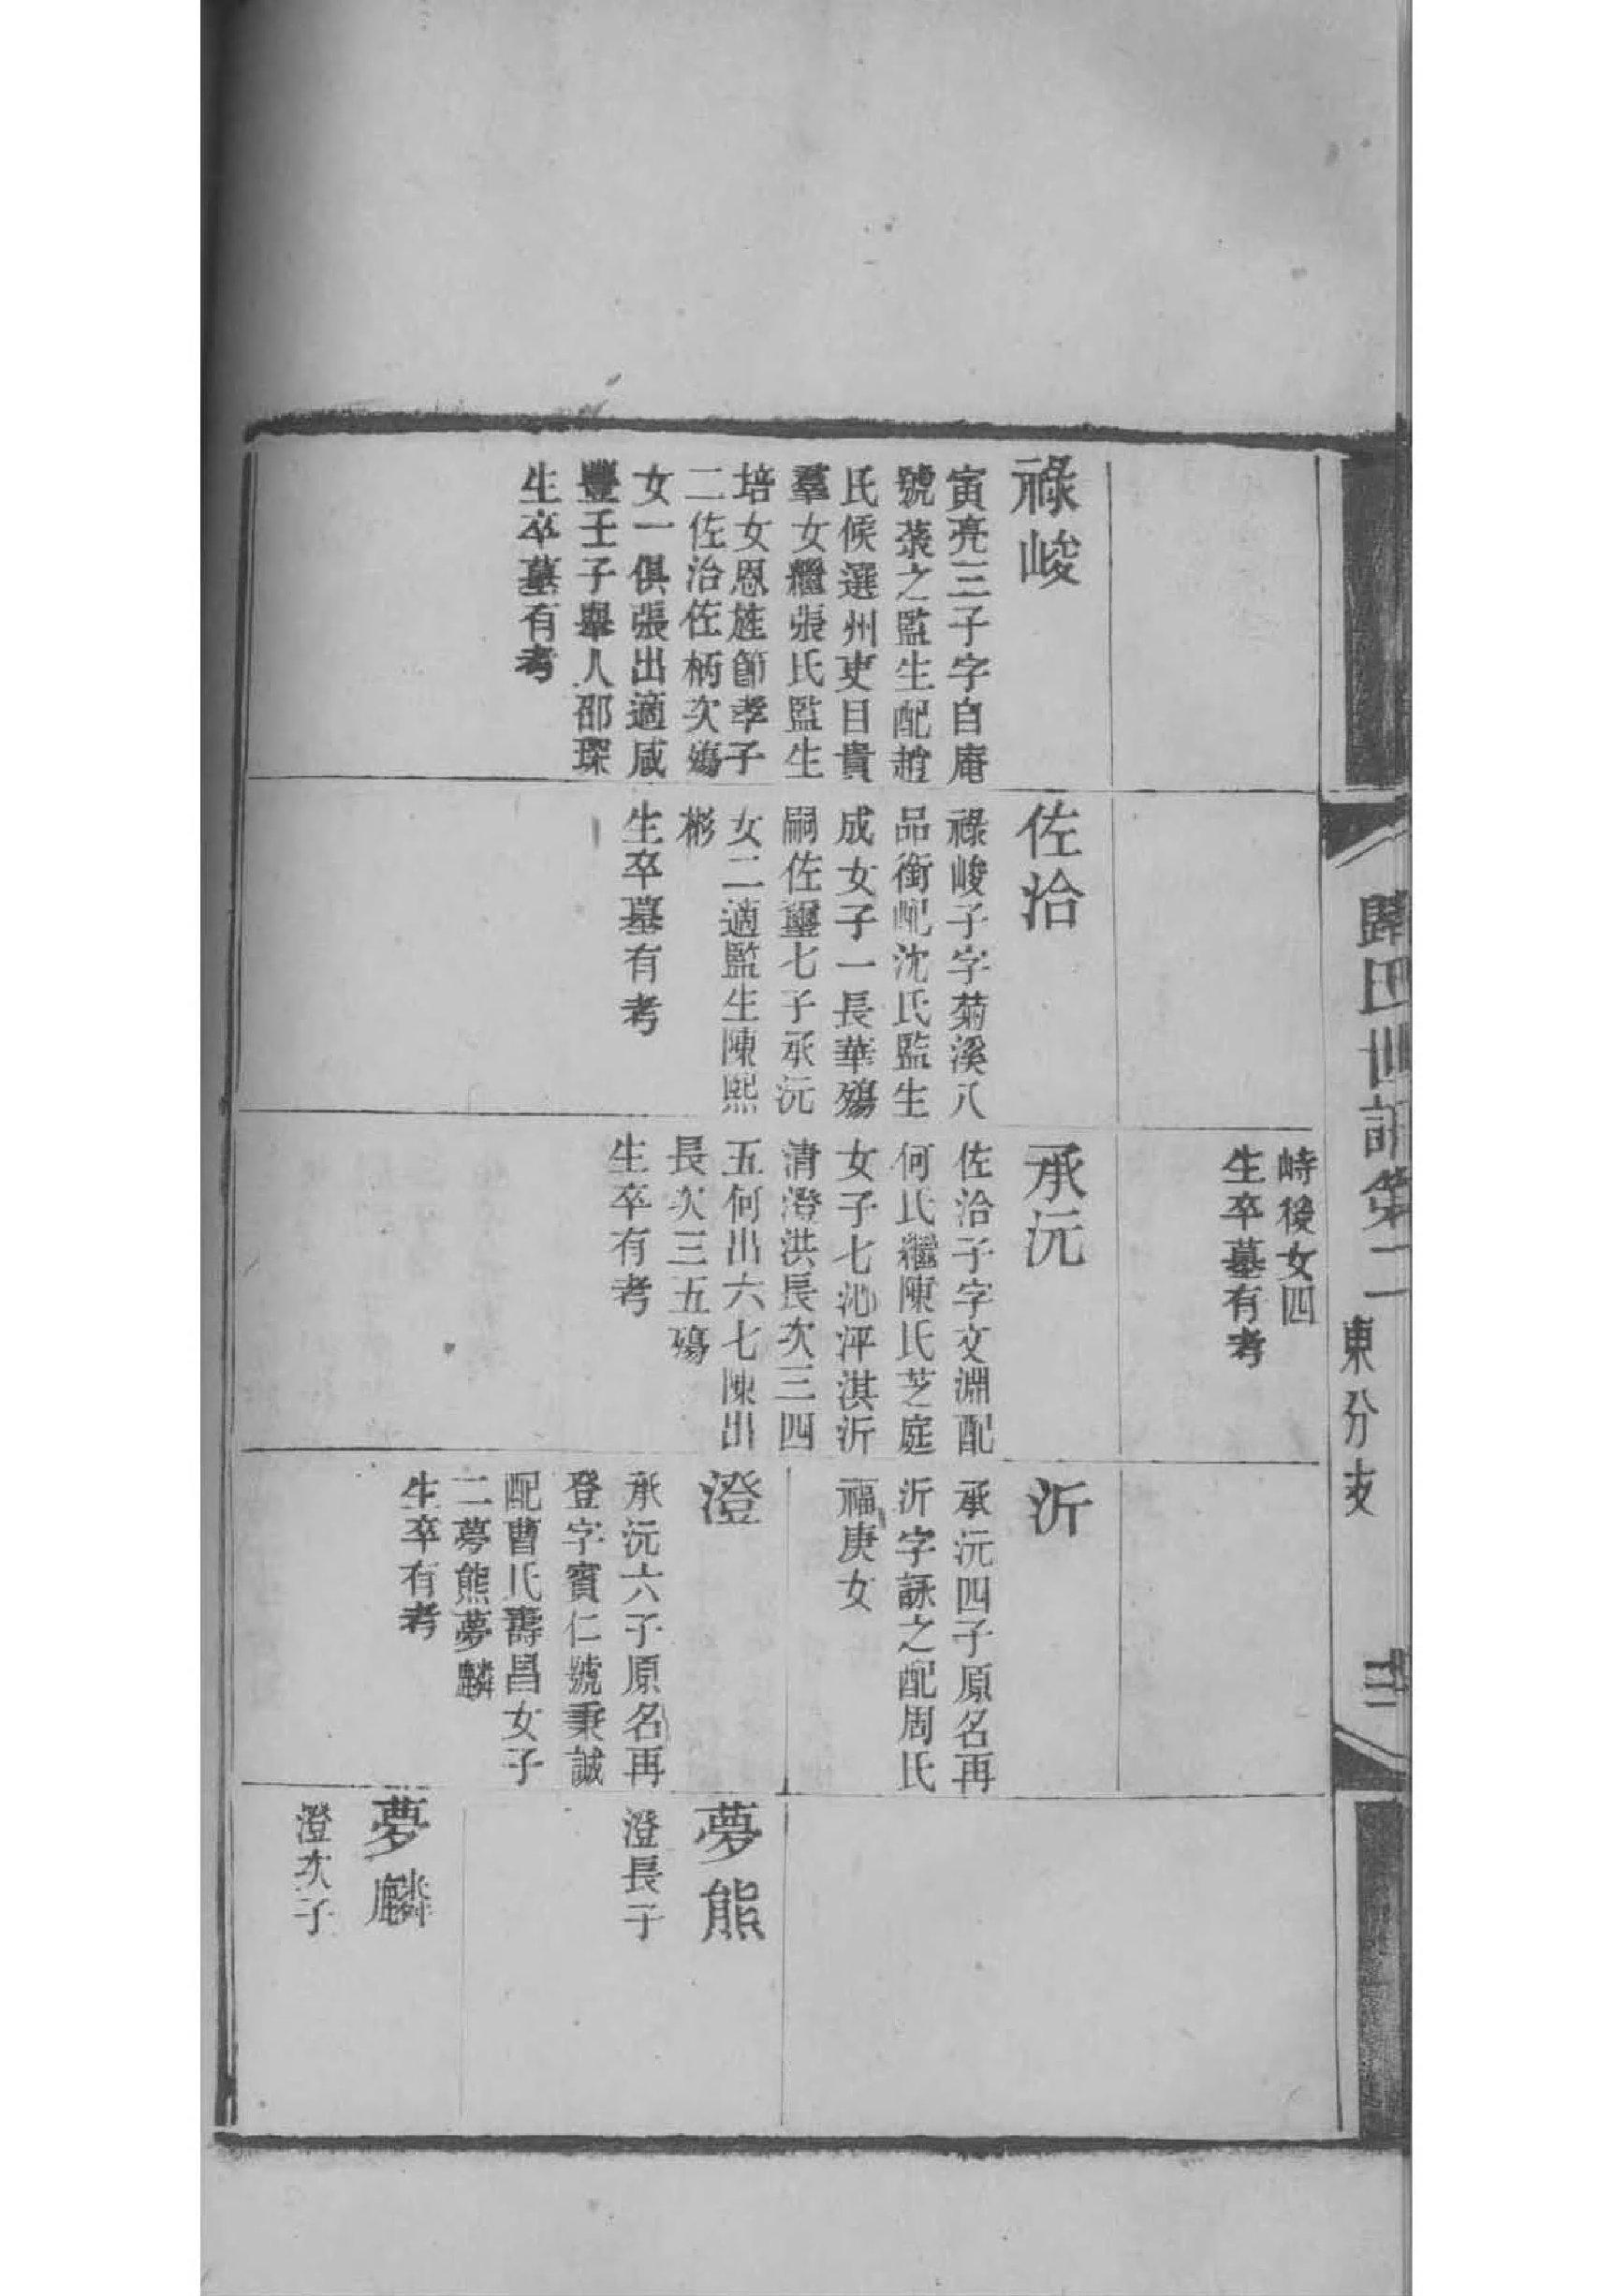 歸氏世譜第二
東分支
峙後女四
生卒墓有考
祿峻
寅亮三子字自庵
號裘之監生配趙
氏候選州吏目貴
羣女繼張氏監生
培女恩旌節孝子
二佐治佐柄次殤
女一俱張出適咸
豐壬子舉人邵琛
生卒墓有考
佐治
祿峻子字菊溪八
品銜配沈氏監生
成女子一長華殤
嗣佐璽七子承沅
女二適監生陳熙
彬
生卒墓有考
承沅
佐治子字文淵配
何氏繼陳氏芝庭
女子七沁泙淇沂
清澄洪長次三四
五何出六七陳出
長次三五殤
生卒有考
沂
承沅四子原名再
沂字詠之配周氏
福庚女
澄
承沅六子原名再
登字賓仁號秉誠
配曹氏壽昌女子
二夢熊夢麟
生卒有考
夢熊
澄長子
夢麟
澄次子